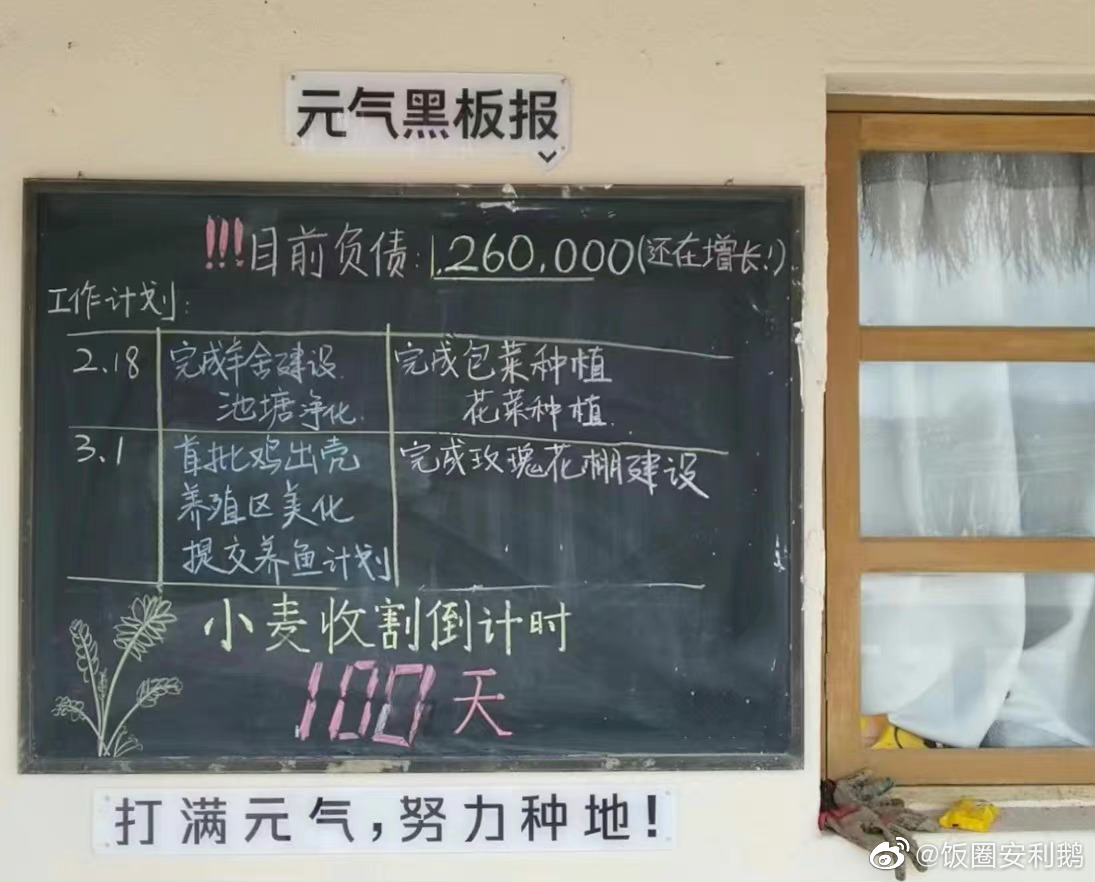 元气黑板报
!!!目前负债:1,260,000(还在增长!)
工作计划:
2.18 完成羊舍建设 完成包菜种植
池塘净化 花菜种植
3.1 首批鸡出壳 完成玫瑰花棚建设
养殖区美化
提交养鱼计划
小麦收割倒计时
100天
打满元气,努力种地!
@饭圈安利鹅